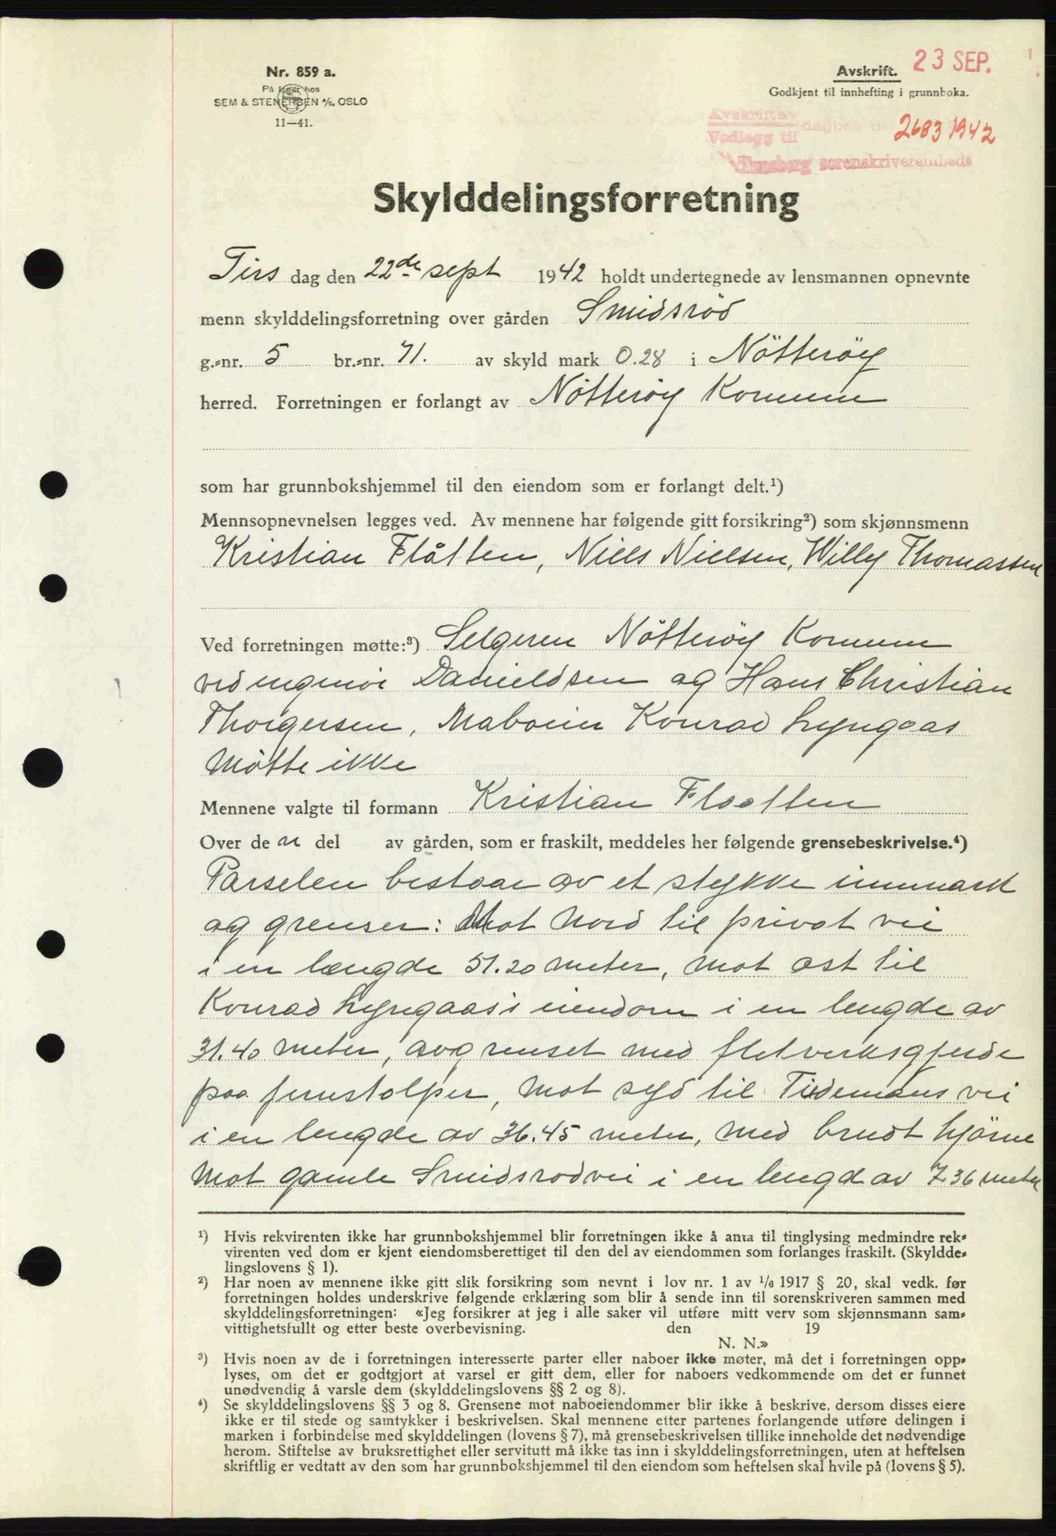 Nr. 859 a.
På lager hos
SEM & STENERSEN A/S, OSLO
11—41.
Avskrift. 23 SEP.
Godkjent til innhefting i grunnboka.
Avskrift av
Vedlegg til dagbok nr. 2683 1942
Tønsberg sorenskriverembede
Skylddelingsforretning
Tirs dag den 22de sept 1942 holdt undertegnede av lensmannen opnevnte
menn skylddelingsforretning over gården Smidsröd
g.-nr. 5 br.-nr. 71. av skyld mark 0.28 i Nötteröy
herred. Forretningen er forlangt av Nötteröy Komune
som har grunnbokshjemmel til den eiendom som er forlangt delt.¹)
Mennsopnevnelsen legges ved. Av mennene har følgende gitt forsikring²) som skjønnsmenn
Kristian Flåtten, Niels Nielsen, Willy Thomassen
Ved forretningen møtte:³) Selgeren Nötteröy Komune
ved ingeniör Danieldsen og Hans Christian
Thorgersen, Naboeier Konrad Lyngaas
Mötte ikke
Mennene valgte til formann Kristian Flaatten
Over de n del av gården, som er fraskilt, meddeles her følgende grensebeskrivelse.⁴)
Parselen bestaar av et stykke innmark
og grenser: Mot Nord til privat vei
i en længde 51.20 meter, mot øst til
Konrad Lyngaas's eiendom i en lengde av
31.40 meter, avgrenset med fletverksgjerde
paa jernstolper, mot syd til Tidemans vei
i en lengde av 36.45 meter, med brudt hjörne
Mot gamle Smidsrodvei i en lengd av 7.36 meter
¹) Hvis rekvirenten ikke har grunnbokshjemmel blir forretningen ikke å anta til tinglysing medmindre rek-
virenten ved dom er kjent eiendomsberettiget til den del av eiendommen som forlanges fraskilt. (Skyldde-
lingslovens § 1).
²) Har noen av mennene ikke gitt slik forsikring som nevnt i lov nr. 1 av 1/6 1917 § 20, skal vedk. før
forretningen holdes underskrive følgende erklæring som blir å sende inn til sorenskriveren sammen med
skylddelingsforretningen: «Jeg forsikrer at jeg i alle saker vil utføre mitt verv som skjønnsmann sam-
vittighetsfullt og etter beste overbevisning. den 19
N. N.»
³) Hvis noen av de i forretningen interesserte parter eller naboer ikke møter, må det i forretningen opp-
lyses, om det er godtgjort at varsel er gitt dem, eller for naboers vedkommende om det er funnet
unødvendig å varsle dem (skylddelingslovens §§ 2 og 8).
⁴) Se skylddelingslovens §§ 3 og 8. Grensene mot naboeiendommer blir ikke å beskrive, dersom disses eiere
ikke er til stede og samtykker i beskrivelsen. Skal mennene etter partenes forlangende utføre delingen i
marken i forbindelse med skylddelingen (lovens § 7), må grensebeskrivelsen tillike inneholde det nødvendige
herom. Stiftelse av bruksrettighet eller servitutt må ikke tas inn i skylddelingsforretningen, uten at heftelsen
skriftlig er vedtatt av den som har grunnbokshjemmel til den eiendom som heftelsen skal hvile på (lovens § 5).